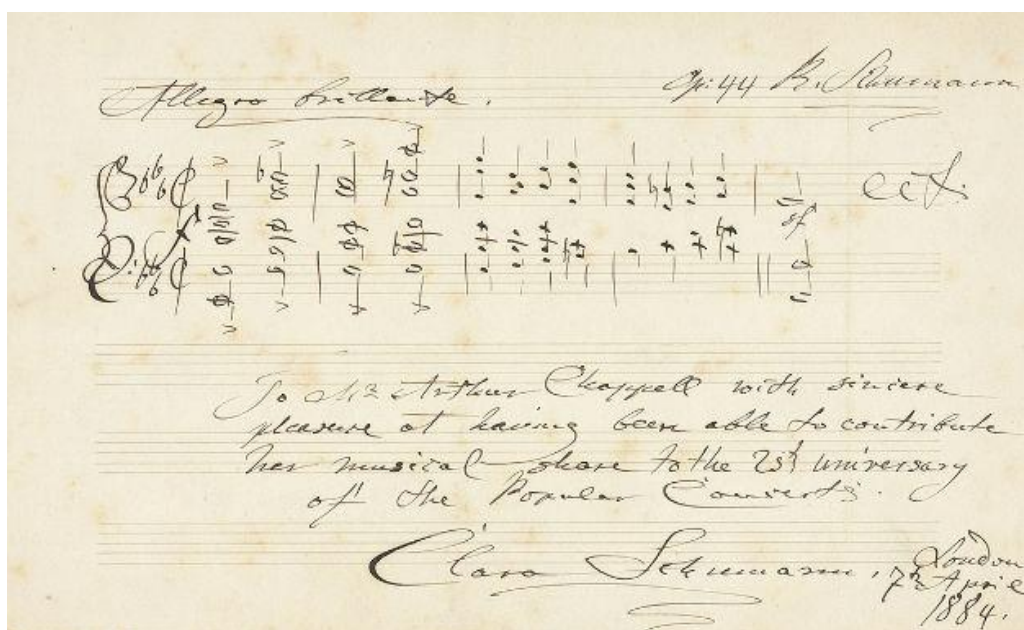 Allegro brillante.
Op: 44 R. Schumann
f
sf
ect.
To Mr Arthur Chappell with sincere
pleasure at having been able to contribute
her musical share to the 25th universary
of the Popular Concerts.
Clara Schumann,
London
7th April
1884.